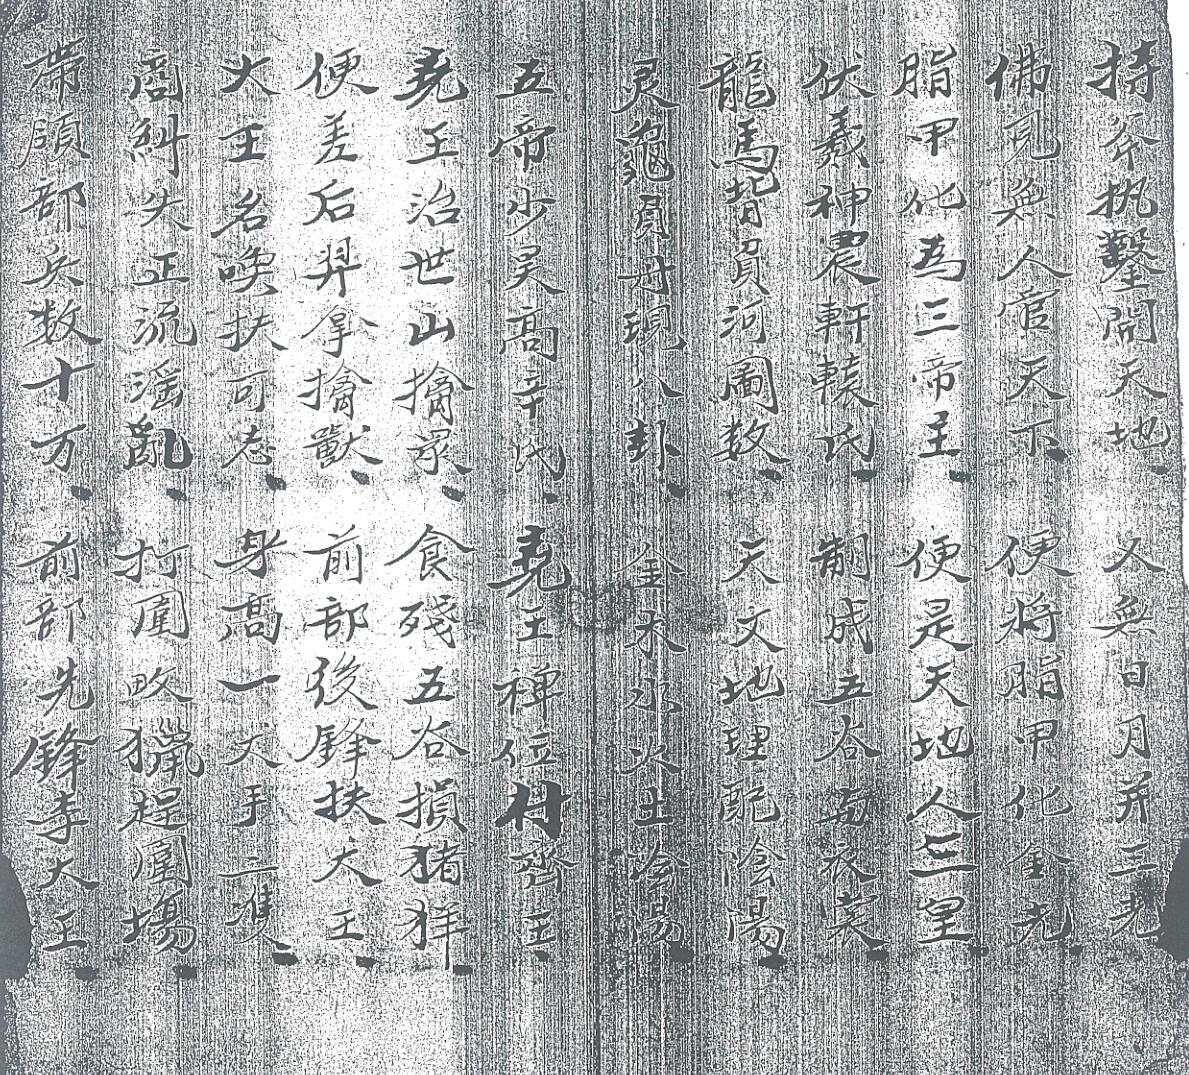 持斧执鑿開天地 又無日月并三光
佛見無人管天下 便将脂甲化金光
脂甲化為三帝王 便是天地人三皇
伏羲神農軒轅氏 制成五谷衣裳
龍馬背負河圖数 天文地理配陰陽
灵龜負丹現八卦 金木水火土陰陽
五帝少昊高辛氏 堯王禅位村齊王
堯王治世山擒眾 食殘五谷損猪羊
便差后羿拿擒獸 前部後鋒扶大王
大王名唤扶可志 身高一丈手二雙
商糾失正流滛亂 打圍畋獵趕圍場
帶領部兵数十万 前部先鋒李大王